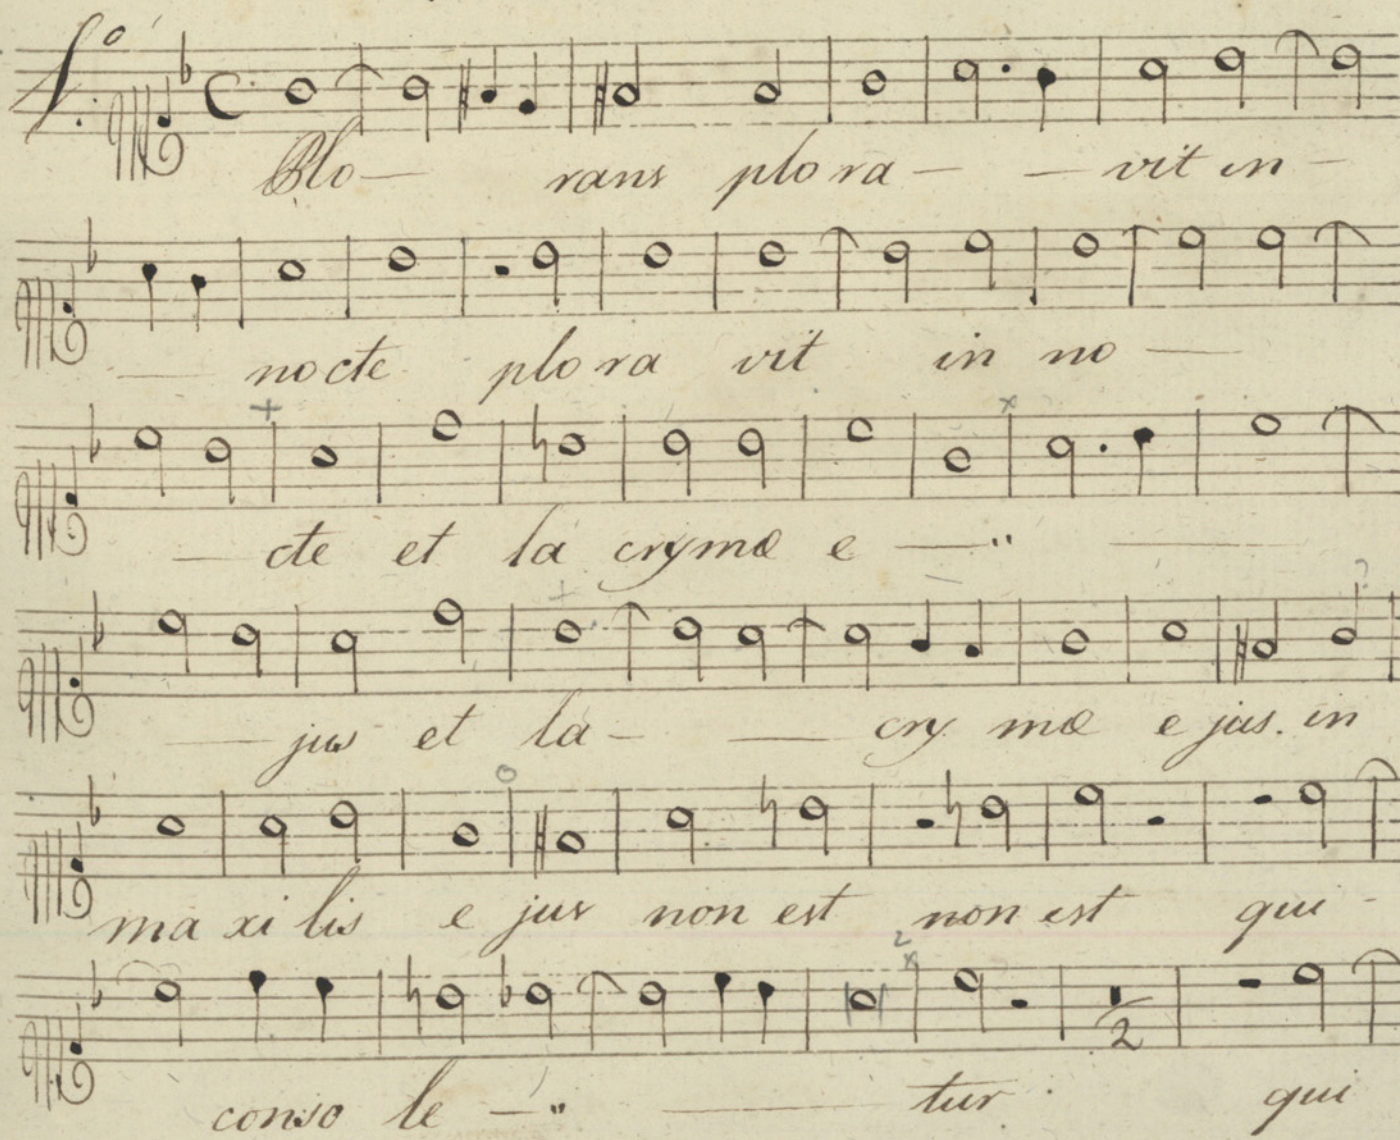 Plo— rans plo ra — — vit in —
— no cte plo ra vit in no —
— cte et la crymæ e — "  —
— jus et la — — cry mæ e jus. in
ma xi lis e jus non est non est qui -
conso le — " — tur. qui